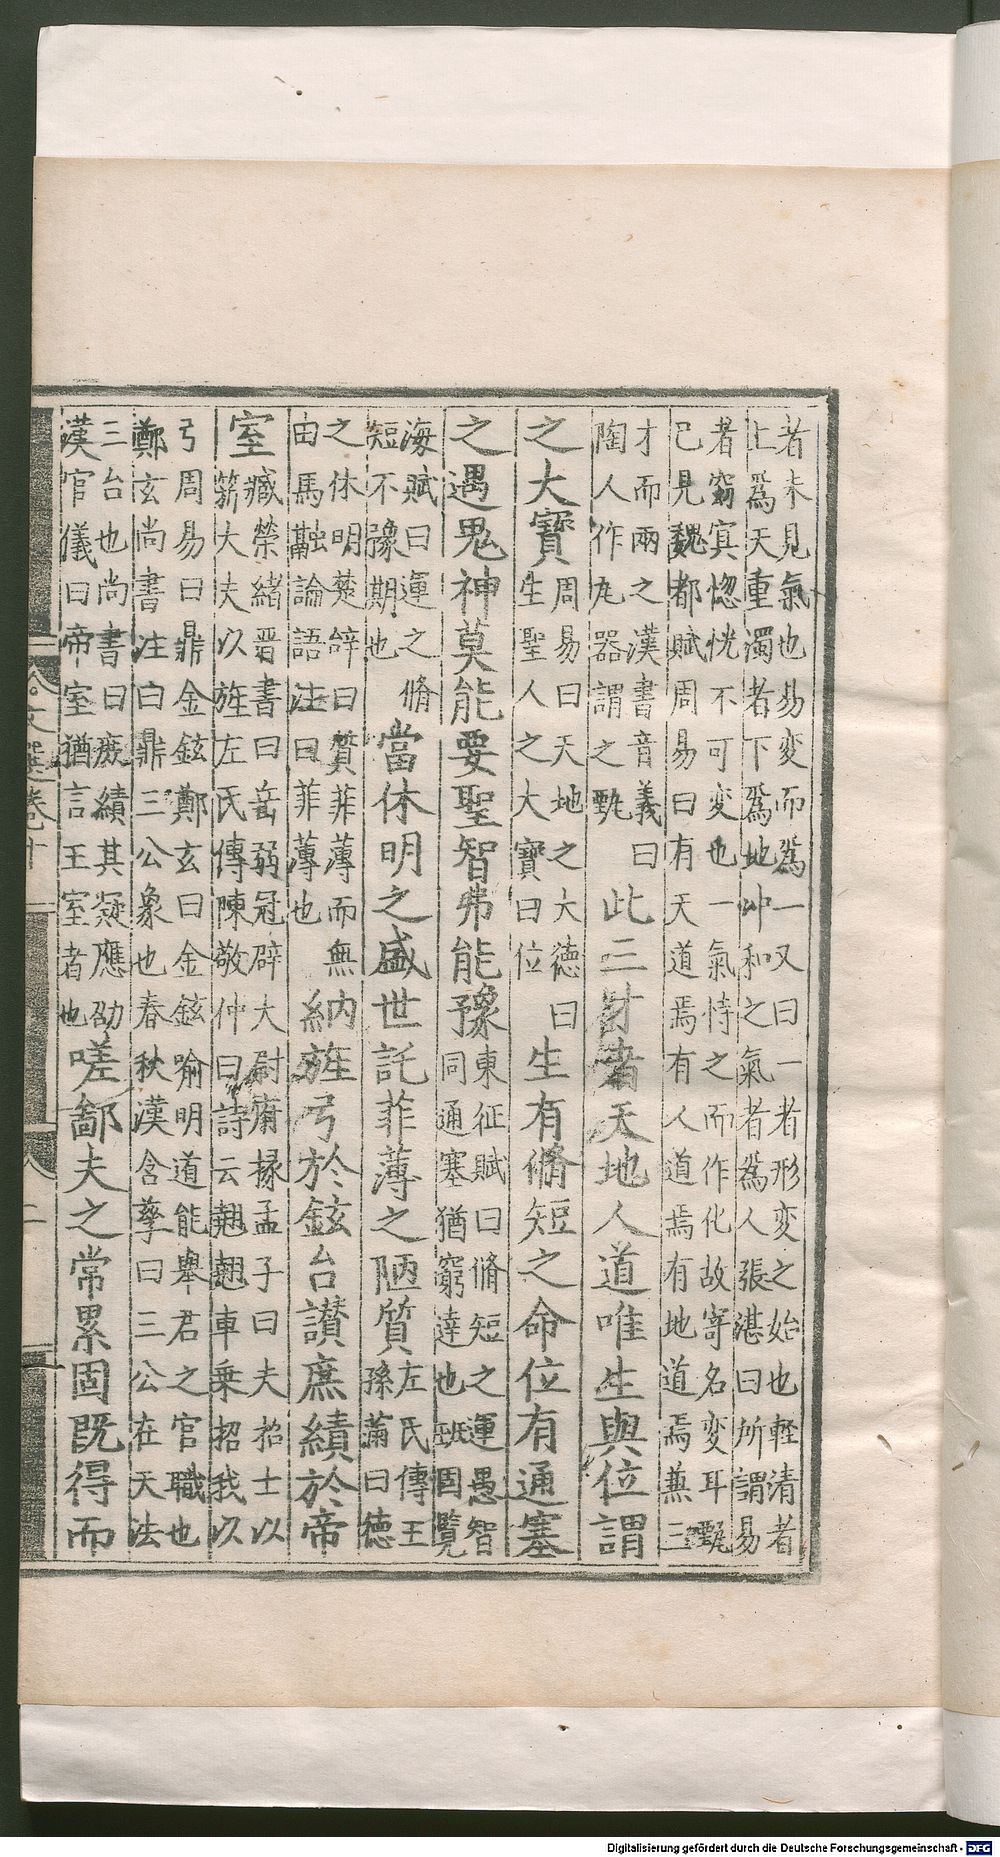 者未見氣也易変而爲一又曰一者形変之始也軽清者
上爲天重濁者下爲地冲和之氣者爲人張湛曰所謂易
者窮㝠惚恍不可変也一氣恃之而作化故寄名変耳甄
已見魏都賦周易曰有天道焉有人道焉有地道焉兼三
才而兩之漢書音義曰
陶人作瓦器謂之甄
此三才者天地人道唯生與位謂
之大寳
周易曰天地之大德曰
生聖人之大寳曰位
生有脩短之命位有通塞
之遇鬼神莫能要聖智弗能豫
東征賦曰脩短之運愚智
同通塞猶窮達也班固覧
海賦曰運之脩
短不豫期也
當休明之盛世託菲薄之陋質
左氏傳王
孫滿曰德
之休明楚辞曰質菲薄而無
由馬融論語注曰菲薄也
納旌弓於鉉台讃庶績於帝
室
臧榮緒晋書曰岳弱冠辟大尉府掾孟子曰夫招士以
箭大夫以旌左氏傳陳敬仲曰詩云翹翹車乗招我以
弓周易曰鼎金鉉鄭玄曰金鉉喻明道能舉君之官職也
鄭玄尚書注曰鼎三公象也春秋漢含孳曰三公在天法
三台也尚書曰庶績其凝應劭
漢官儀曰帝室猶言王室者也
嗟鄙夫之常累固既得而
文選卷十
二
Digitalisierung gefördert durch die Deutsche Forschungsgemeinschaft - DFG